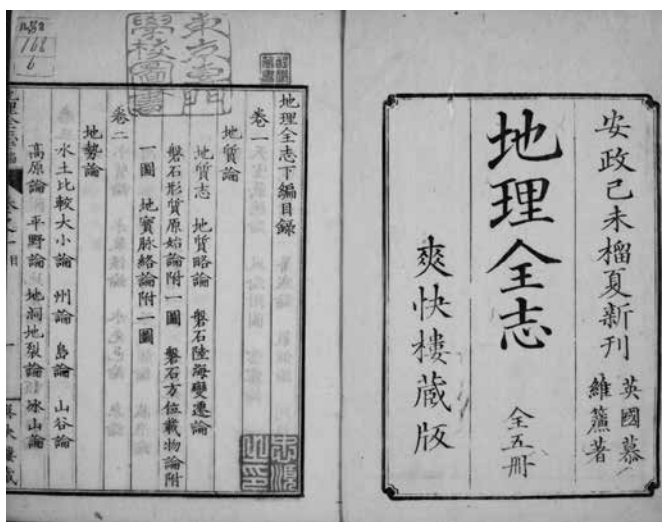 安政己未榴夏新刊
英國慕
維廉著
地理全志
全五冊
爽快樓藏版
地理全志下編目錄
卷一
地質論
地質志 地質略論 磐石陸海變遷論
磐石形質原始論附一圖 磐石方位載物論附
一圖 地寶脉絡論附一圖
卷二
地勢論
水土比較大小論 州論 島論 山谷論
高原論 平野論 地洞地裂論 冰山論
學校圖書
168
6